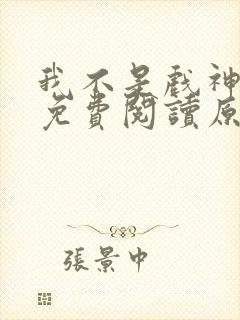 我不是戲神
免費閱讀原
張景中